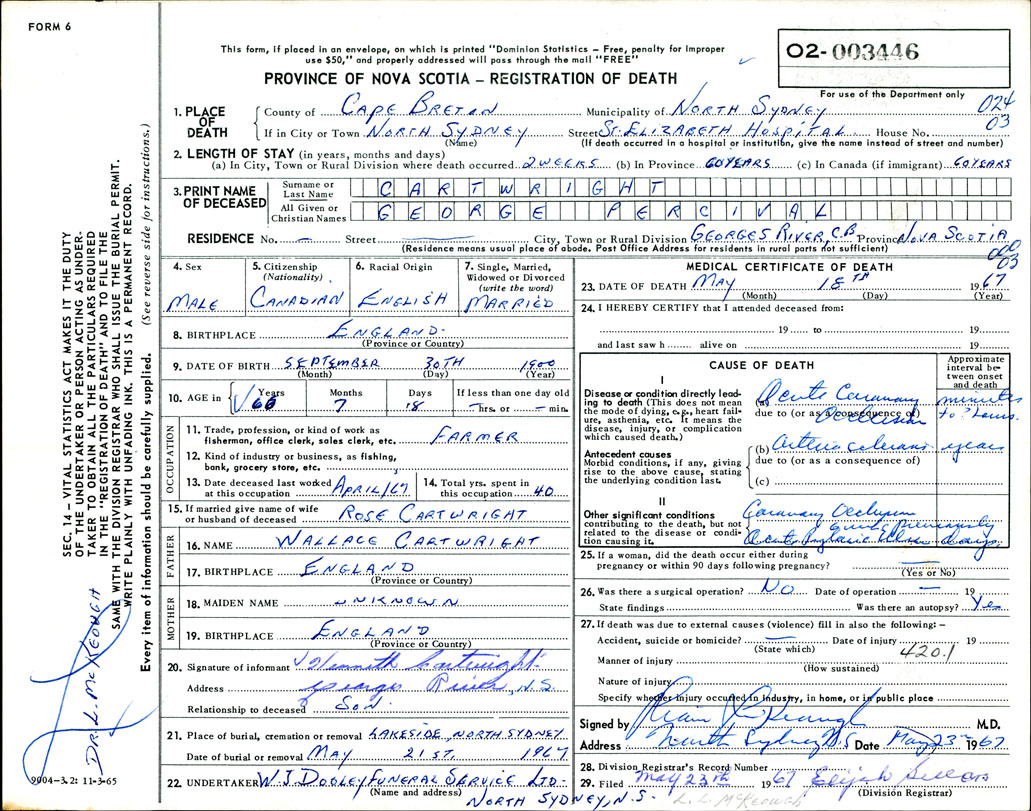 FORM 6
This form, if placed in an envelope, on which is printed "Dominion Statistics – Free, penalty for improper
use $50," and properly addressed will pass through the mail "FREE"
02-003446
PROVINCE OF NOVA SCOTIA – REGISTRATION OF DEATH
For use of the Department only
024
03
1. PLACE OF DEATH
County of CAPE BRETON Municipality of NORTH SYDNEY
If in City or Town NORTH SYDNEY Street ST. ELIZABETH HOSPITAL House No.
(Name) (If death occurred in a hospital or institution, give the name instead of street and number)
2. LENGTH OF STAY (in years, months and days)
(a) In City, Town or Rural Division where death occurred 2 WEEKS (b) In Province 60 YEARS (c) In Canada (if immigrant) 60 YEARS
3. PRINT NAME OF DECEASED
Surname or Last Name CARTWRIGHT
All Given or Christian Names GEORGE PERCIVAL
RESIDENCE No. – Street — City, Town or Rural Division GEORGES RIVER, C.B Province NOVA SCOTIA
(Residence means usual place of abode. Post Office Address for residents in rural parts not sufficient)
03
4. Sex MALE
5. Citizenship (Nationality) CANADIAN
6. Racial Origin ENGLISH
7. Single, Married, Widowed or Divorced (write the word) MARRIED
8. BIRTHPLACE ENGLAND
(Province or Country)
9. DATE OF BIRTH SEPTEMBER 30TH 1900
(Month) (Day) (Year)
10. AGE in Years 66 Months 7 Days 18 If less than one day old – hrs. or – min.
OCCUPATION
11. Trade, profession or kind of work as fisherman, office clerk, sales clerk, etc. FARMER
12. Kind of industry or business, as fishing, bank, grocery store, etc.
13. Date deceased last worked at this occupation APRIL/67
14. Total yrs. spent in this occupation 40
15. If married give name of wife or husband of deceased ROSE CARTWRIGHT
FATHER
16. NAME WALLACE CARTWRIGHT
17. BIRTHPLACE ENGLAND
(Province or Country)
MOTHER
18. MAIDEN NAME UNKNOWN
19. BIRTHPLACE ENGLAND
(Province or Country)
20. Signature of informant Kenneth Cartwright
Address Georges River, N.S.
Relationship to deceased SON
21. Place of burial, cremation or removal LAKESIDE, NORTH SYDNEY
Date of burial or removal MAY 21ST. 1967
22. UNDERTAKER W. J. DOOLEY FUNERAL SERVICE LTD-
(Name and address) NORTH SYDNEY, N.S.
MEDICAL CERTIFICATE OF DEATH
23. DATE OF DEATH MAY 18TH 1967
(Month) (Day) (Year)
24. I HEREBY CERTIFY that I attended deceased from:
19 to 19
and last saw h alive on 19
CAUSE OF DEATH
Approximate interval between onset and death
I
Disease or condition directly leading to death (This does not mean the mode of dying, e.g., heart failure, asthenia, etc. It means the disease, injury, or complication which caused death.)
(a) Acute Coronary Occlusion minutes to
due to (or as a consequence of)
Antecedent causes
Morbid conditions, if any, giving rise to the above cause, stating the underlying condition last.
(b) years
due to (or as a consequence of)
(c)
II
Other significant conditions contributing to the death, but not related to the disease or condition causing it.
Coronary Occlusion
previously
Acute days
25. If a woman, did the death occur either during pregnancy or within 90 days following pregnancy? —
(Yes or No)
26. Was there a surgical operation? NO Date of operation — 19
State findings Was there an autopsy? Yes
27. If death was due to external causes (violence) fill in also the following: –
Accident, suicide or homicide? — Date of injury 19
(State which) 420.1
Manner of injury
(How sustained)
Nature of injury
Specify whether injury occurred in industry, in home, or in public place
Signed by Keough M.D.
Address North Sydney N.S Date May 23rd 1967
28. Division Registrar's Record Number
29. Filed May 23rd 1967 Elijah
(Division Registrar)
L. L. McKeough
SEC. 14 – VITAL STATISTICS ACT MAKES IT THE DUTY
OF THE UNDERTAKER OR PERSON ACTING AS UNDER-
TAKER TO OBTAIN ALL THE PARTICULARS REQUIRED
IN THE "REGISTRATION OF DEATH" AND TO FILE THE
SAME WITH THE DIVISION REGISTRAR WHO SHALL ISSUE THE BURIAL PERMIT.
WRITE PLAINLY WITH UNFADING INK. THIS IS A PERMANENT RECORD.
Every item of information should be carefully supplied. (See reverse side for instructions.)
DR. L. McKEOUGH
9004-3.2: 11-3-65